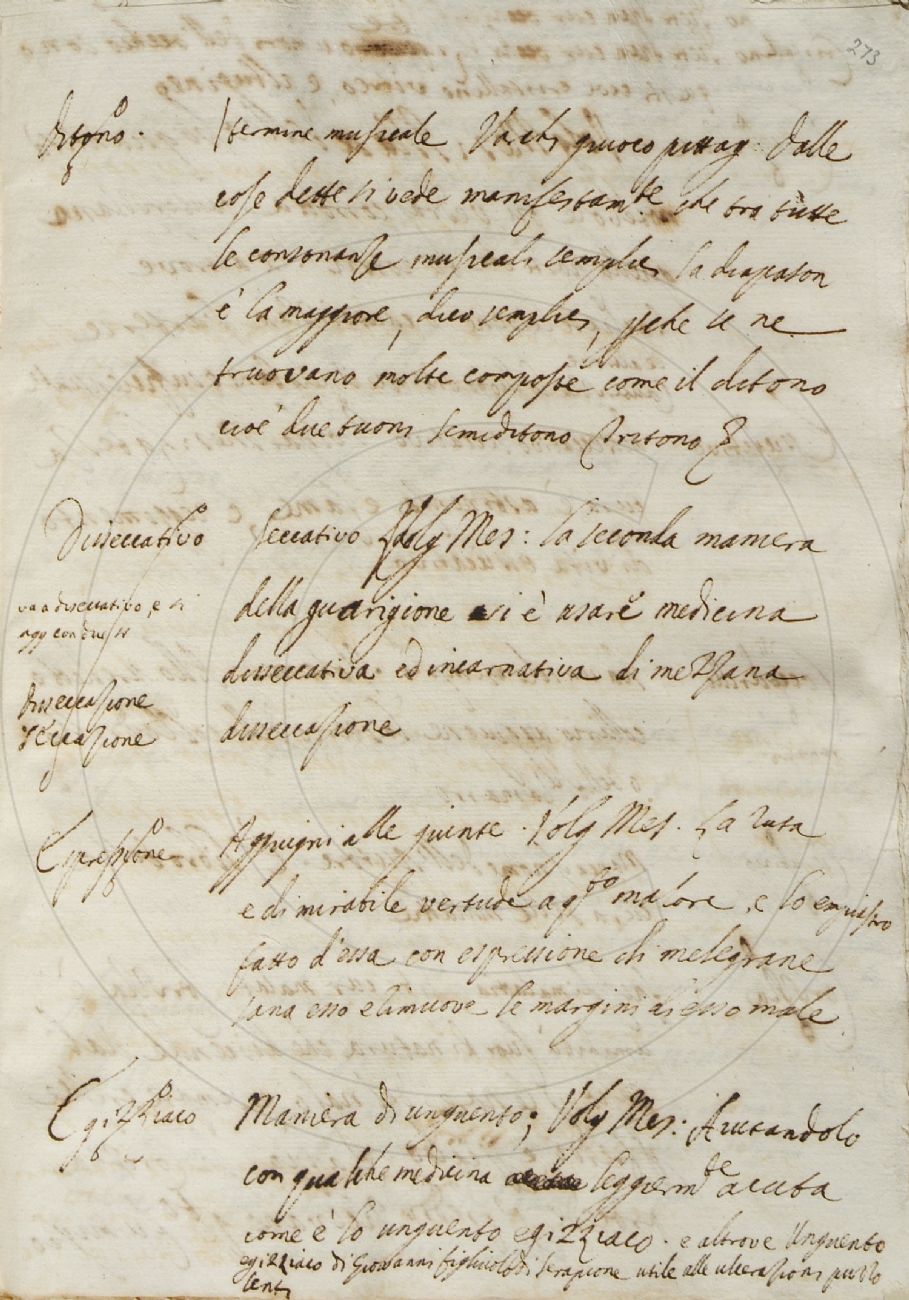 273
Ditono.
termine musicale Varchi giuoco pittag: Dalle
cose dette si vede manifestamte che tra tutte
le consonanze musicali semplici la diapason
è la maggiore, dico semplici, pche se ne
truovano molte composte come il ditono
cioè due tuoni semiditono tritono
Disseccativo
seccativo Volg Mes: la seconda maniera
della guarigione si è usare medicina
disseccativa ed incarnativa di mezzana
disseccazione
va a diseccativo, e si
agg con questi
Disseccazione
Seccazione
Espressione
Aggiugni alle giunte. Volg Mes. La Ruta
e di mirabile vertude a qsto malore, e lo empiastro
fatto d'essa con espressione di melegrane
sana esso e rimuove le margini di esso male
Egizziaco
Maniera di unguento; Volg Mes: Aiutandolo
con qualche medicina leggiermte acuta
come è lo unguento egizziaco. e altrove Unguento
egizziaco di Giovanni figliuolo di Serapione utile alle ulcerazioni puzzo
lenti